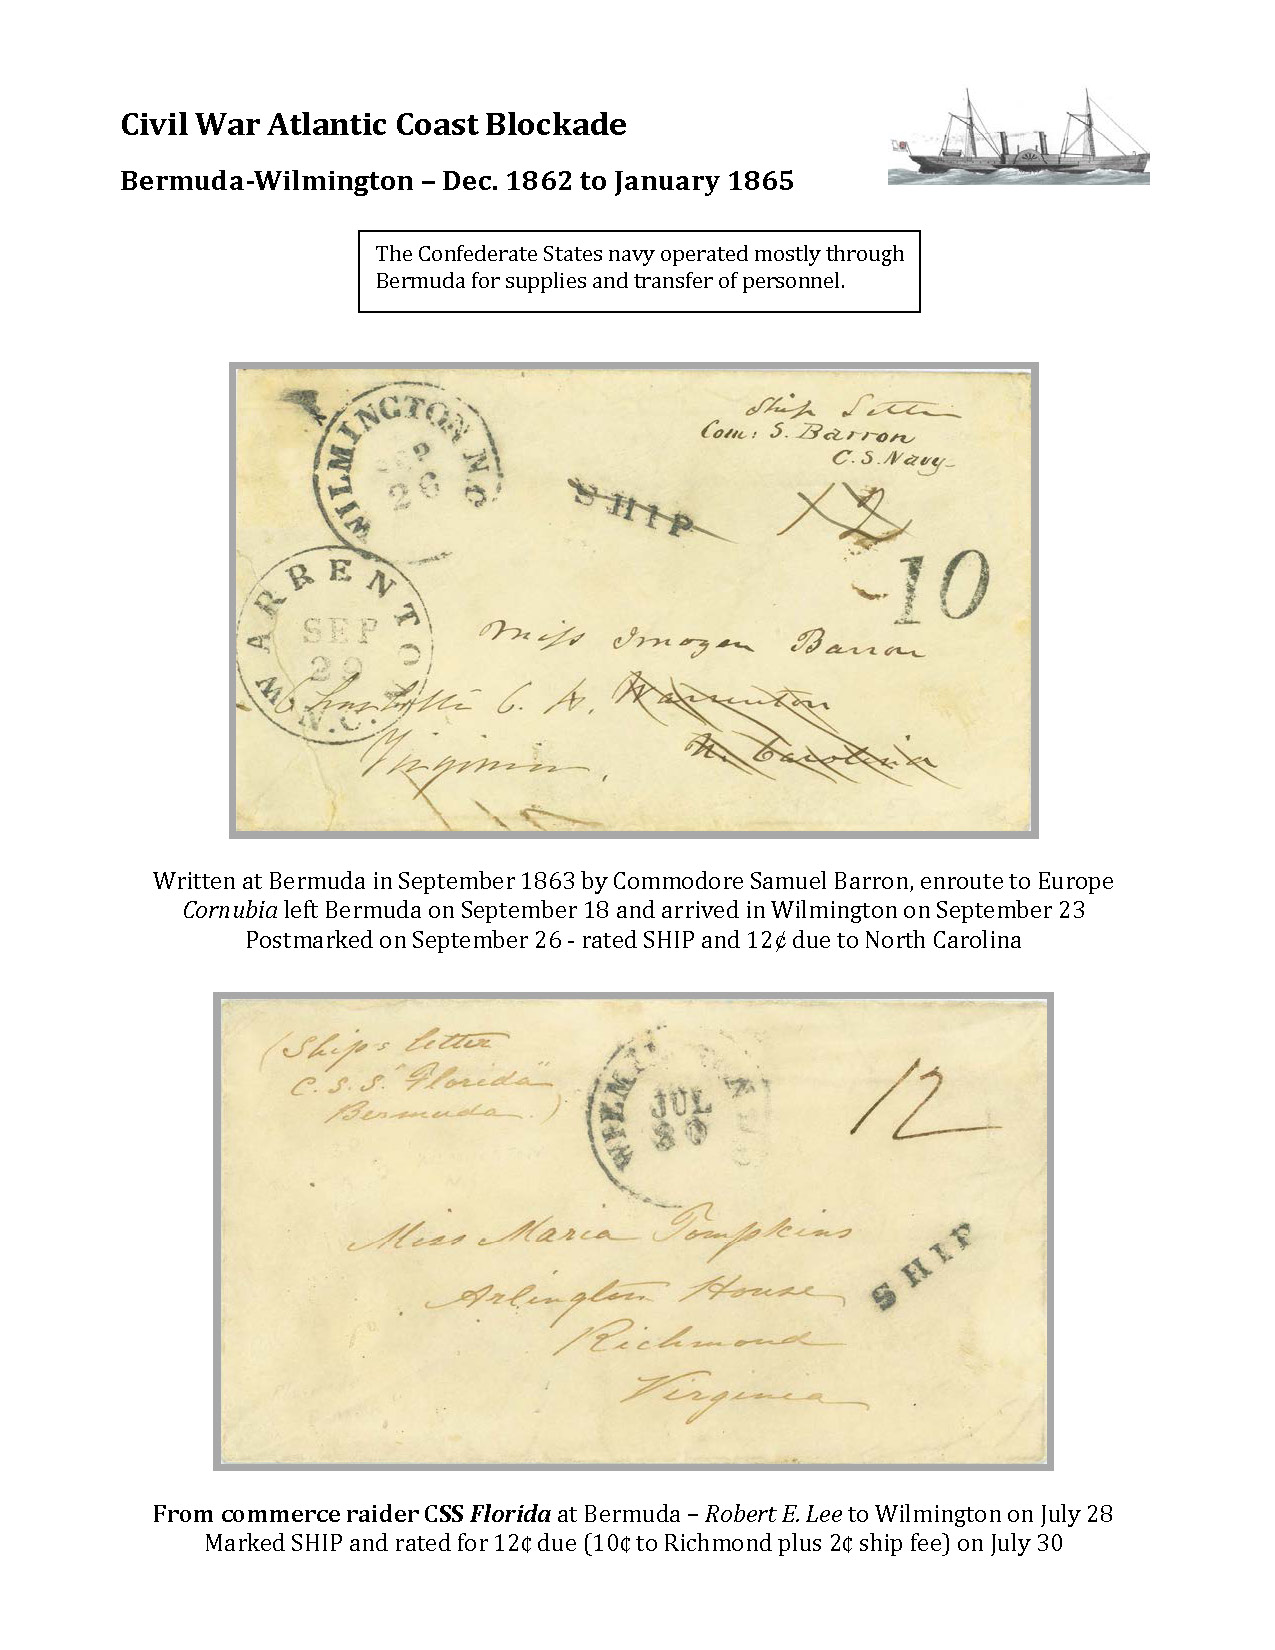 Civil War Atlantic Coast Blockade
Bermuda-Wilmington – Dec. 1862 to January 1865
The Confederate States navy operated mostly through
Bermuda for supplies and transfer of personnel.
WILMINGTON N.C.
SEP
26
Ship Letter
Com: S. Barron
C.S. Navy
SHIP
12
10
WARRENTON
SEP
29
N.C.
Miss Imogen Barron
Charlotte C. H. Warrenton
N. Carolina
Virginia.
Written at Bermuda in September 1863 by Commodore Samuel Barron, enroute to Europe
Cornubia left Bermuda on September 18 and arrived in Wilmington on September 23
Postmarked on September 26 - rated SHIP and 12¢ due to North Carolina
(Ship's letter
C. S. S. "Florida"
Bermuda.)
JUL
30
12
SHIP
Miss Maria Tompkins
Arlington House
Richmond
Virginia
From commerce raider CSS Florida at Bermuda – Robert E. Lee to Wilmington on July 28
Marked SHIP and rated for 12¢ due (10¢ to Richmond plus 2¢ ship fee) on July 30